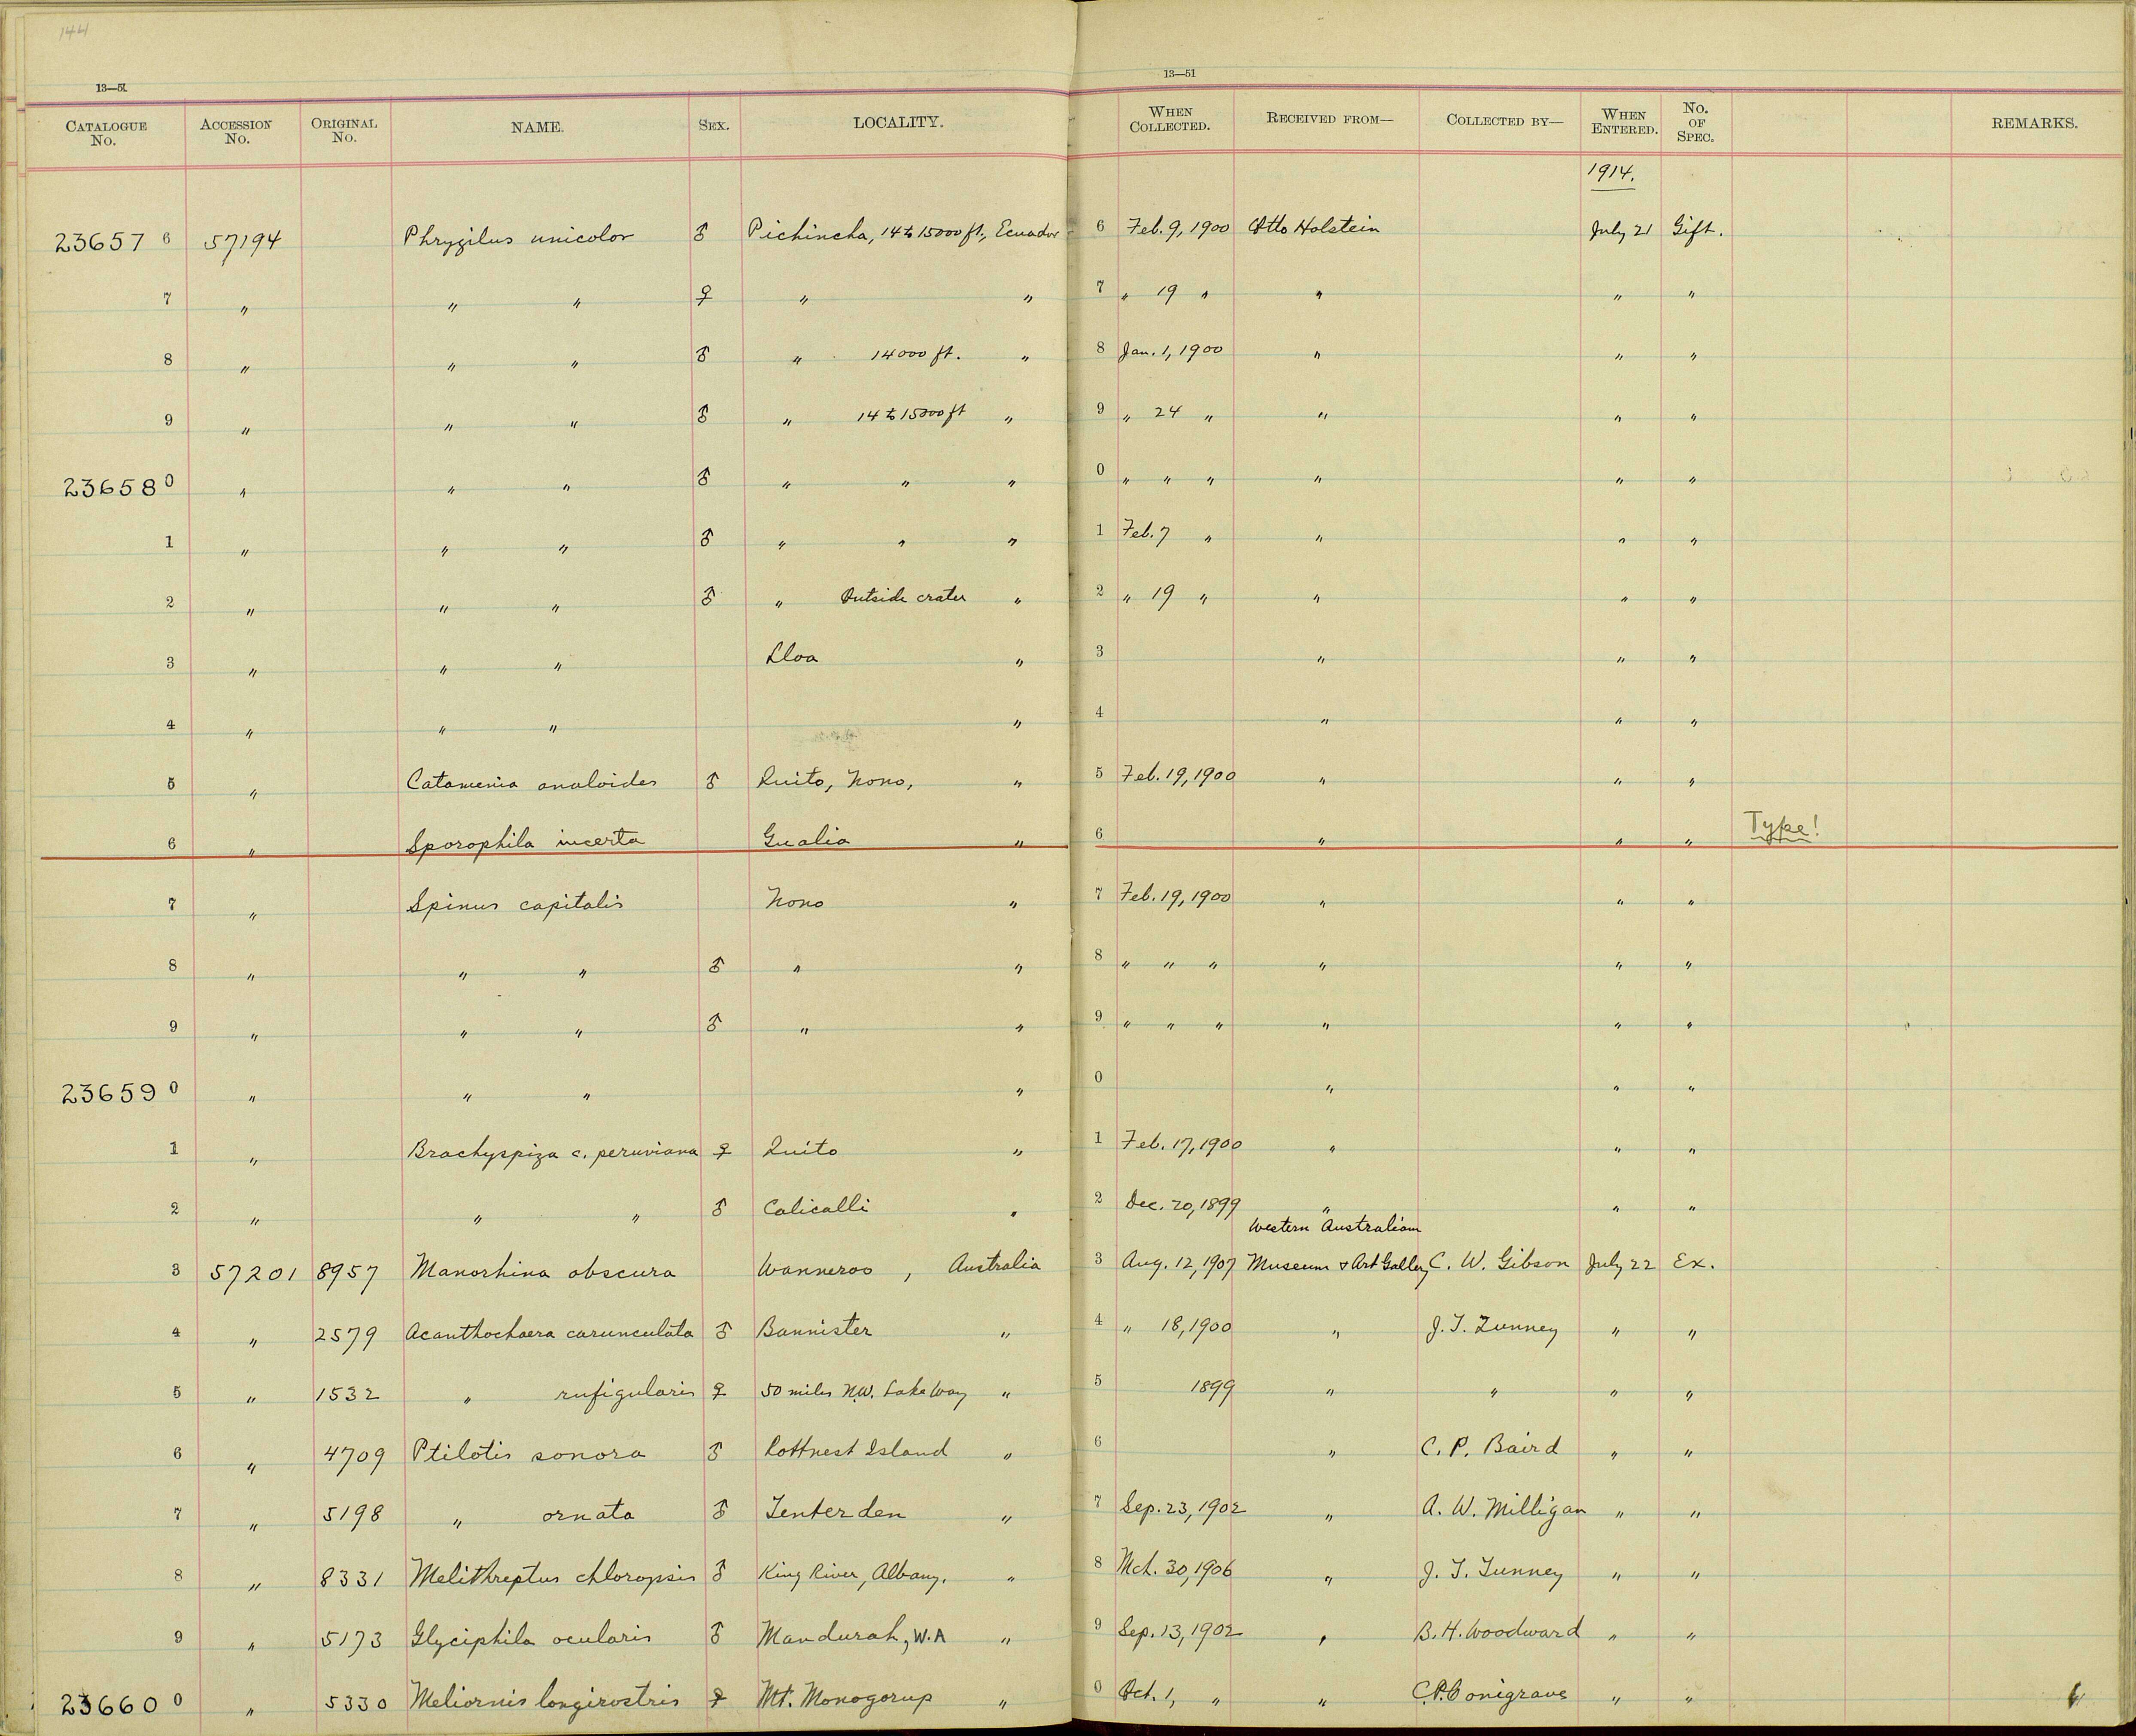 144
13—51
13—51
CATALOGUE No. ACCESSION No. ORIGINAL No. NAME. SEX. LOCALITY. WHEN COLLECTED. RECEIVED FROM— COLLECTED BY— WHEN ENTERED. No. OF SPEC. REMARKS.
1914.
23657 6 57194 Phrygilus unicolor ♂ Pichincha, 14 to 15000 ft., Ecuador 6 Feb. 9, 1900 Otto Holstein July 21 Gift.
7 " " " ♀ " " 7 " 19 " " " "
8 " " " ♂ " 14000 ft. " 8 Jan. 1, 1900 " " "
9 " " " ♂ " 14 to 15000 ft " 9 " 24 " " " "
23658 0 " " " ♂ " " " 0 " " " " " "
1 " " " ♂ " " " 1 Feb. 7 " " " "
2 " " " ♂ " Outside crater " 2 " 19 " " " "
3 " " " Lloa " 3 " " "
4 " " " " 4 " " "
5 " Catamenia analoides ♂ Quito, Nono, " 5 Feb. 19, 1900 " " "
6 " Sporophila incerta Gualia " 6 " " " Type!
7 " Spinus capitalis Nono " 7 Feb. 19, 1900 " " "
8 " " " ♂ " " 8 " " " " " "
9 " " " ♂ " " 9 " " " " " "
23659 0 " " " " 0 " " "
1 " Brachyspiza c. peruviana ♀ Quito " 1 Feb. 17, 1900 " " "
2 " " " ♂ Calicalli " 2 Dec. 20, 1899 " " "
Western Australian
3 57201 8957 Manorhina obscura Wanneroo , Australia 3 Aug. 12, 1907 Museum & Art Gallery C. W. Gibson July 22 Ex.
4 " 2579 Acanthochaera carunculata ♂ Bannister " 4 " 18, 1900 " J. T. Tunney " "
5 " 1532 " rufigularis ♀ 50 miles N.W. Lake Way " 5 1899 " " " "
6 " 4709 Ptilotis sonora ♂ Rottnest Island " 6 " C. P. Baird " "
7 " 5198 " ornata ♂ Tenterden " 7 Sep. 23, 1902 " A. W. Milligan " "
8 " 8331 Melithreptus chloropsis ♂ King River, Albany. " 8 Mch. 30, 1906 " J. T. Tunney " "
9 " 5173 Glyciphila ocularis ♂ Mandurah, W.A " 9 Sep. 13, 1902 " B. H. Woodward " "
23660 0 " 5330 Meliornis longirostris ♀ Mt. Monogorup " 0 Oct. 1, " " C.P. Conigrave " "